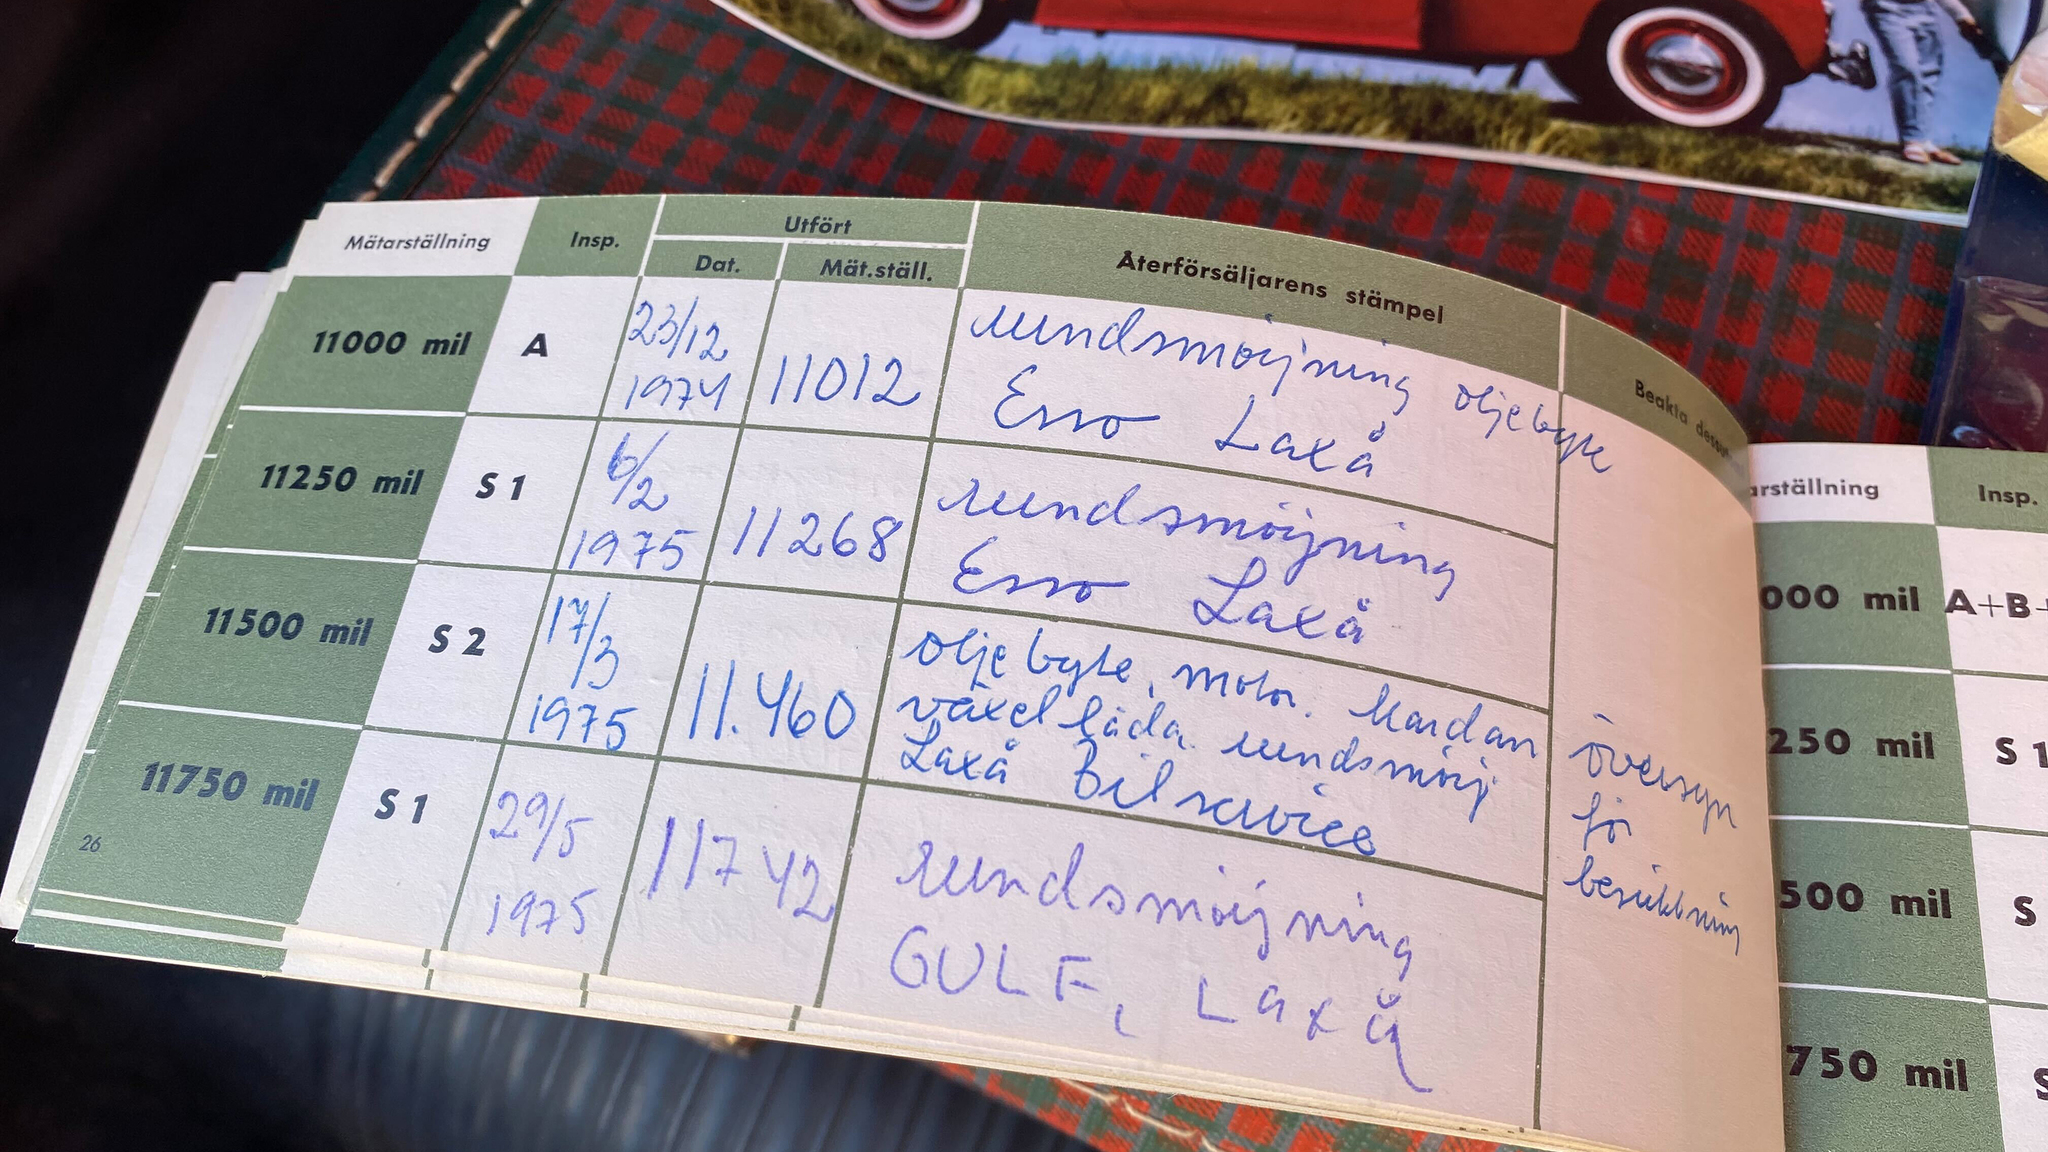 Mätarställning Insp. Utfört Återförsäljarens stämpel
Dat. Mät.ställ.
Beakta
11000 mil A 23/12 1974 11012 rundsmörjning oljebyte
Esso Laxå
11250 mil S 1 6/2 1975 11268 rundsmörjning
Esso Laxå
11500 mil S 2 17/3 1975 11.460 oljebyte, motor. Kardan
växellåda rundsmörj
Laxå Bilservice
översyn
för
besiktning
11750 mil S 1 29/5 1975 11742 rundsmörjning
GULF, Laxå
26
arställning Insp.
000 mil A+B+
250 mil S 1
500 mil S
750 mil S